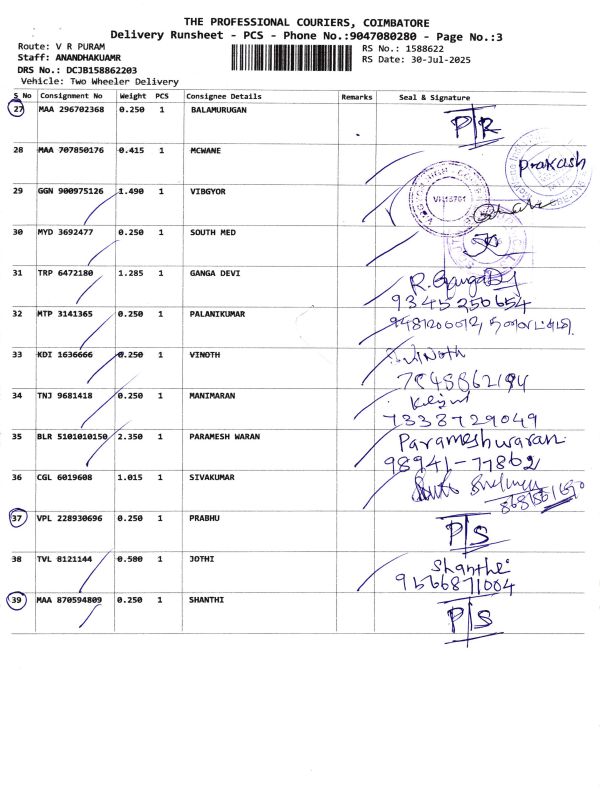 THE PROFESSIONAL COURIERS, COIMBATORE
Delivery Runsheet - PCS - Phone No.:9047080280 - Page No.:3
Route: V R PURAM
RS No.: 1588622
Staff: ANANDHAKUAMR
RS Date: 30-Jul-2025
DRS No.: DCJB158862203
Vehicle: Two Wheeler Delivery
S No Consignment No Weight PCS Consignee Details Remarks Seal & Signature
27 MAA 296702368 0.250 1 BALAMURUGAN P/R
28 MAA 707850176 0.415 1 MCWANE Prakash
29 GGN 900975126 1.490 1 VIBGYOR
30 MYD 3692477 0.250 1 SOUTH MED
31 TRP 6472180 1.285 1 GANGA DEVI R. Ganga D
9345250654
32 MTP 3141365 0.250 1 PALANIKUMAR
33 KDI 1636666 0.250 1 VINOTH Vinoth
7548862194
34 TNJ 9681418 0.250 1 MANIMARAN
7338729049
35 BLR 5101010150 2.350 1 PARAMESH WARAN Parameshwaran
98941-77862
36 CGL 6019608 1.015 1 SIVAKUMAR
37 VPL 228930696 0.250 1 PRABHU P/S
38 TVL 8121144 0.500 1 JOTHI Shanthi
9566871004
39 MAA 870594809 0.250 1 SHANTHI P/S